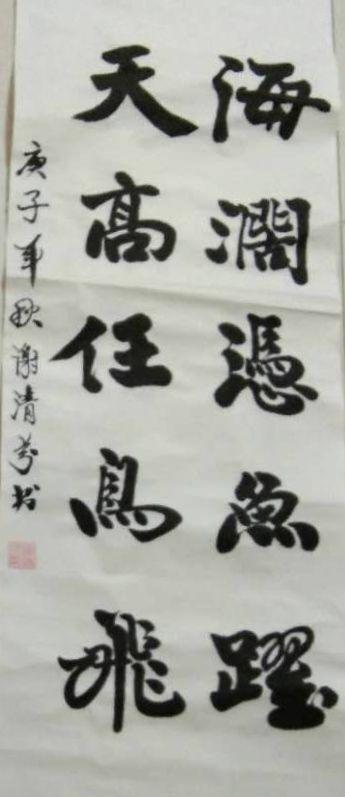 海濶憑魚躍
天高任鳥飛
庚子年秋謝清芬书